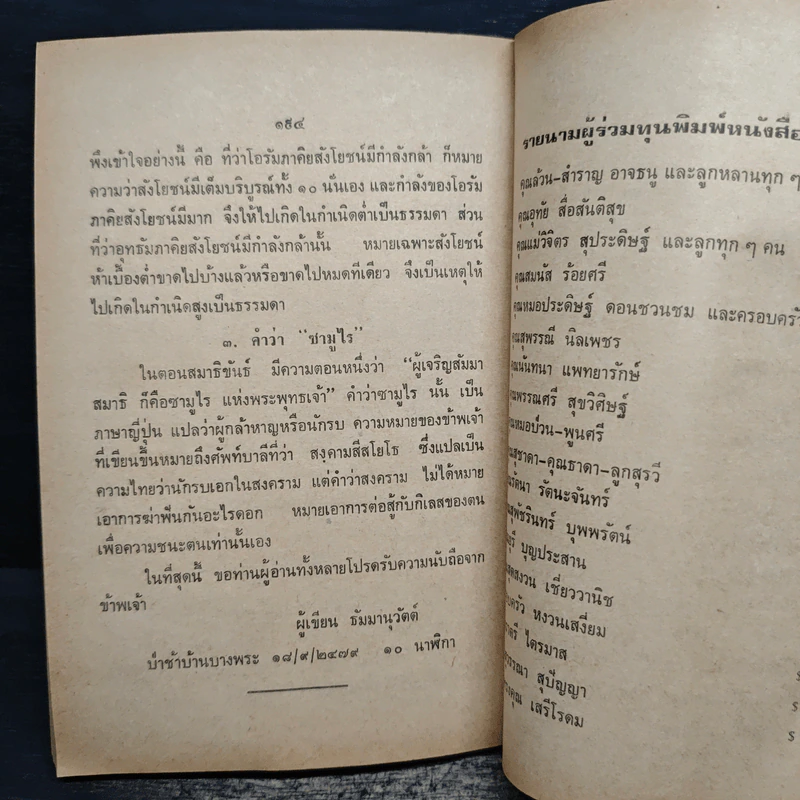 ๑๕๔
พึงเข้าใจอย่างนี้ คือ ที่ว่าโอรัมภาคิยสังโยชน์มีกำลังกล้า ก็หมาย
ความว่าสังโยชน์มีเต็มบริบูรณ์ทั้ง ๑๐ นั่นเอง และกำลังของโอรัม
ภาคิยสังโยชน์มีมาก จึงให้ไปเกิดในกำเนิดต่ำเป็นธรรมดา ส่วน
ที่ว่าอุทธัมภาคิยสังโยชน์มีกำลังกล้านั้น หมายเฉพาะสังโยชน์
ห้าเบื้องต่ำขาดไปบ้างแล้วหรือขาดไปหมดทีเดียว จึงเป็นเหตุให้
ไปเกิดในกำเนิดสูงเป็นธรรมดา
๓. คำว่า "ซามูไร"
ในตอนสมาธิขันธ์ มีความตอนหนึ่งว่า "ผู้เจริญสัมมา
สมาธิ ก็คือซามูไร แห่งพระพุทธเจ้า" คำว่าซามูไร นั้น เป็น
ภาษาญี่ปุ่น แปลว่าผู้กล้าหาญหรือนักรบ ความหมายของข้าพเจ้า
ที่เขียนขึ้นหมายถึงศัพท์บาลีที่ว่า สงฺคามสีสโยโธ ซึ่งแปลเป็น
ความไทยว่านักรบเอกในสงคราม แต่คำว่าสงคราม ไม่ได้หมาย
เอาการฆ่าฟันกันอะไรดอก หมายเอาการต่อสู้กับกิเลสของตน
เพื่อความชนะตนเท่านั้นเอง
ในที่สุดนี้ ขอท่านผู้อ่านทั้งหลายโปรดรับความนับถือจาก
ข้าพเจ้า
ผู้เขียน ธัมมานุวัตต์
ป่าช้าบ้านบางพระ ๑๘/๙/๒๔๗๙ ๑๐ นาฬิกา
รายนามผู้ร่วมทุนพิมพ์หนังสือ
คุณล้วน-สำราญ อาจธนู และลูกหลานทุก ๆ
คุณอุทัย สื่อสันติสุข
คุณแม่วิจิตร สุประดิษฐ์ และลูกทุก ๆ คน
คุณสมนัส ร้อยศรี
คุณหมอประดิษฐ์ ดอนชวนชม และครอบครัว
คุณสุพรรณี นิลเพชร
คุณนันทนา แพทยารักษ์
คุณพรรณศรี สุขวิศิษฐ์
คุณหมอป่วน-พูนศรี
คุณสุชาดา-คุณธาดา-ลูกสุรวี
รัตนา รัตนะจันทร์
สุพัชรินทร์ บุพพรัตน์
บุญประสาน
สงวน เชี่ยววานิช
ครอบครัว หงวนเสงี่ยม
ไตรมาส
สุปัญญา
คุณ เสรีโรดม
ร
ร
ร